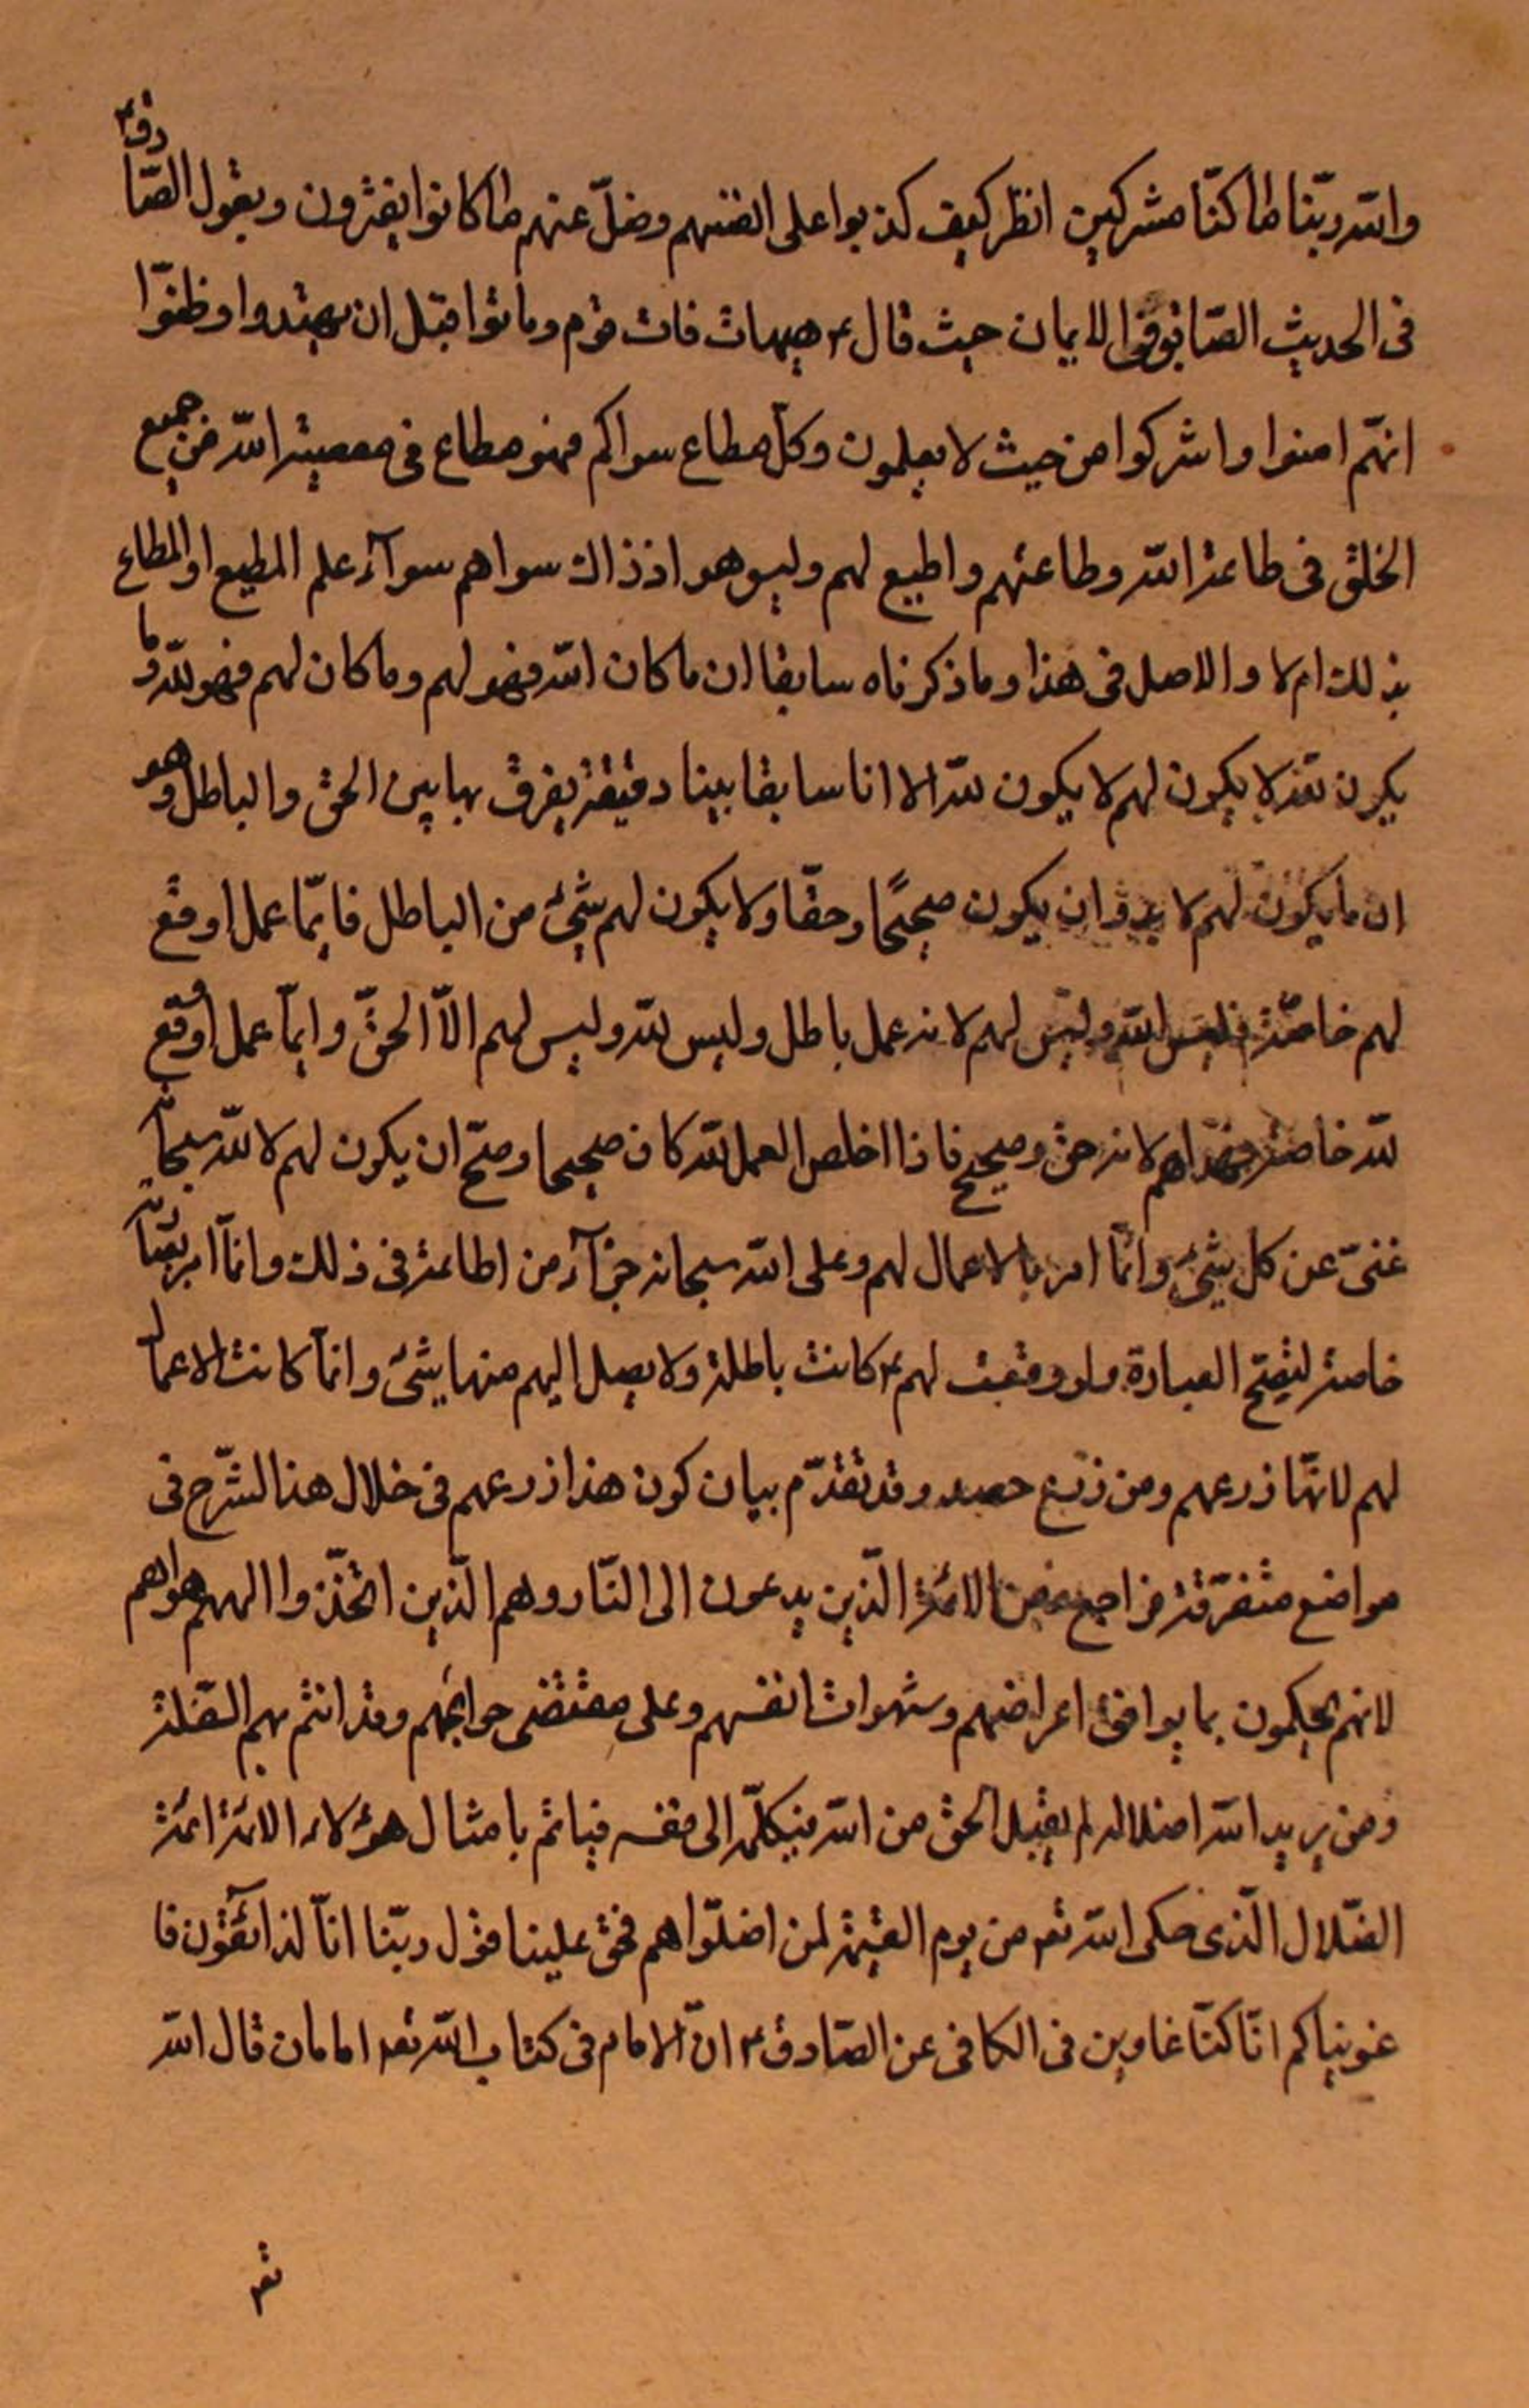 والله ربّنا ما كنّا مشركين انظر كيف كذبوا على انفسهم وضلّ عنهم ما كانوا يفترون ويقول الصّادق ع
فى الحديث فى الايمان حيث قال ع هيهات فات قوم وماتوا قبل ان يهتدوا وظنّوا
انهّم امنوا واشركوا من حيث لا يعلمون وكلّ مطاع سواكم فهو مطاع فى معصية الله من جميع
الخلق فى طاعة الله وطاعتهم واطيع لهم وليس هو اذ ذاك سواهم سوآء علم المطيع او المطاع
بذلك ام لا والاصل فى هذا وما ذكرناه سابقا ان ما كان الله فهو لهم وما كان لهم فهو لله وما
يكون لله لا يكون لهم لا يكون لله الا انا سابقا بينا دقيقة يفرق بها بين الحق والباطل وهو
ان ما يكون لهم لا بد وان يكون صحيحًا وحقّا ولا يكون لهم شئ من الباطل فايّما عمل اوقع
لهم خاصّة فليس لله وليس لهم لانه عمل باطل وليس لله وليس لهم الاّ الحقّ وايمّا عمل اوقع
لله خاصة فهو لهم لانه حق وصحيح فاذا اخلص العمل لله كان صحيحا وصحّ ان يكون لهم لا لله سبحانه
غنىّ عن كل شئ وانمّا امر بالاعمال لهم وعلى الله سبحانه جزآء من اطاعه فى ذلك وانمّا امر بقيامه
خاصة لتصحّ العبادة ولو وقعت لهم ع كانت باطلة ولا يصل اليهم منها شئ وانمّا كانت الاعمال
لهم لانهّا زرعهم ومن زرع حصد وقد تقدّم بيان كون هذا زرعهم فى خلال هذا الشّرح فى
مواضع متفرّقة فراجع ومن الائمّة الّذين يدعون الى النّار وهم الّذين اتخّذوا الههم هواهم
لانهم يحكمون بما يوافق اعراضهم وشهوات انفسهم وعلى مقتضى حوائجهم وقد ائتم بهم السّفلة
ومن يريد الله اضلاله لم يقبل الحق من الله فيكلّه الى نفسه فيأتم بامثال هؤلاء الائمة ائمة
الضّلال الّذى حكى الله تعه من يوم القيمة لمن اضلّوا هم فحق علينا قول ربّنا انّا لذائقون فا
غويناكم انّا كنّا غاوين فى الكافى عن الصّادق ع انّ الامام فى كتاب الله تعه امامان قال الله
تعه